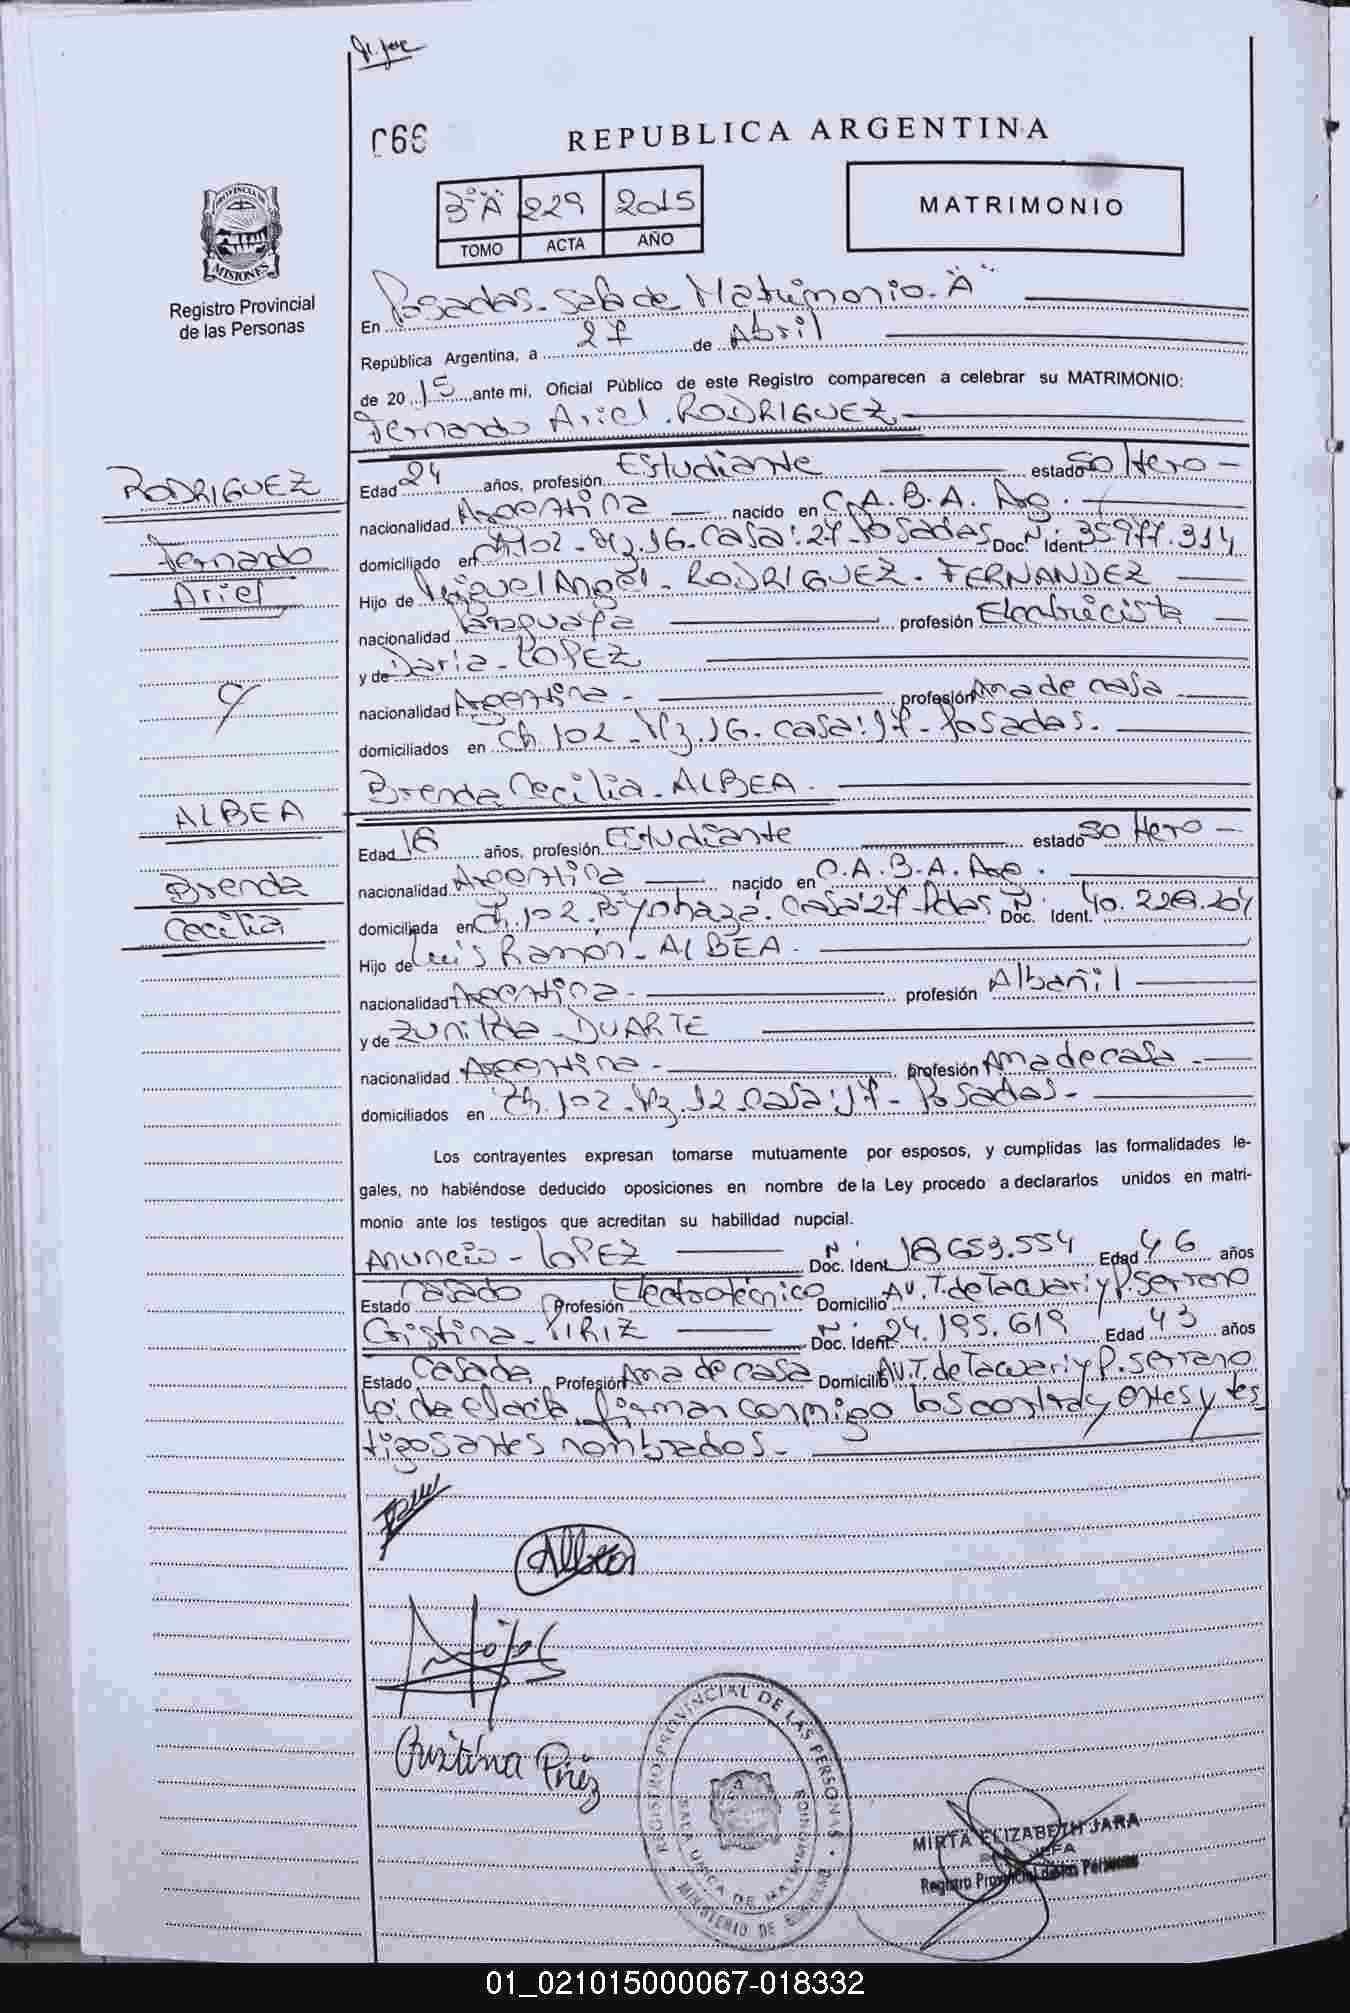 066
REPUBLICA ARGENTINA
3º "A" 229 2015
TOMO ACTA AÑO
MATRIMONIO
PROVINCIA DE MISIONES
Registro Provincial
de las Personas
En Posadas - Sala de Matrimonio - "A"
República Argentina, a 27 de Abril
de 2015 ante mi, Oficial Público de este Registro comparecen a celebrar su MATRIMONIO:
Fernando Ariel. RODRIGUEZ
RODRIGUEZ
Fernando
Ariel
Edad 24 años, profesión Estudiante estado Soltero
nacionalidad Argentina nacido en C.A.B.A. Arg.
domiciliado en Ch 102 - Mz. 16. Casa: 27 - Posadas Doc. Nº Ident. 35977.314
Hijo de Miguel Angel - RODRIGUEZ - FERNANDEZ
nacionalidad Paraguaya profesión Electricista
y de Daria - LOPEZ
nacionalidad Argentina - profesión Ama de casa
domiciliados en Ch. 102 - Mz. 16 - Casa: 17 - Posadas.
Brenda Cecilia - ALBEA.
ALBEA
Brenda
Cecilia
Edad 18 años, profesión Estudiante estado Soltero
nacionalidad Argentina nacido en C.A.B.A. Arg.
domiciliada en Ch. 102. Casa 27 - Pdas Doc. Nº Ident. 40.228.204
Hijo de Luis Ramón - ALBEA.
nacionalidad Argentina - profesión Albañil
y de Zunilda - DUARTE
nacionalidad Argentina - profesión Ama de casa -
domiciliados en Ch. 102 - Mz. 12 - Casa: 17 - Posadas -
Los contrayentes expresan tomarse mutuamente por esposos, y cumplidas las formalidades le-
gales, no habiéndose deducido oposiciones en nombre de la Ley procedo a declararlos unidos en matri-
monio ante los testigos que acreditan su habilidad nupcial.
Anuncio - LOPEZ Doc. Nº Ident. 18653.554 Edad 46 años
Estado Casado Profesión Electrotécnico Domicilio AV. T. de Tacuari y P. Serrano
Cristina - PIRIZ Doc. Nº Ident. 24.195.619 Edad 43 años
Estado Casada Profesión Ama de casa Domicilio AV. T. de Tacuari y P. Serrano
Leida el acta, firman conmigo los contrayentes y tes
tigos antes nombrados -
Albea
Cristina Piriz
REGISTRO PROVINCIAL DE LAS PERSONAS
SALA UNICA DE MATRIMONIO
MINISTERIO DE GOBIERNO
MIRTA ELIZABETH JARA
JEFA
Registro Provincial de las Personas
01_021015000067-018332